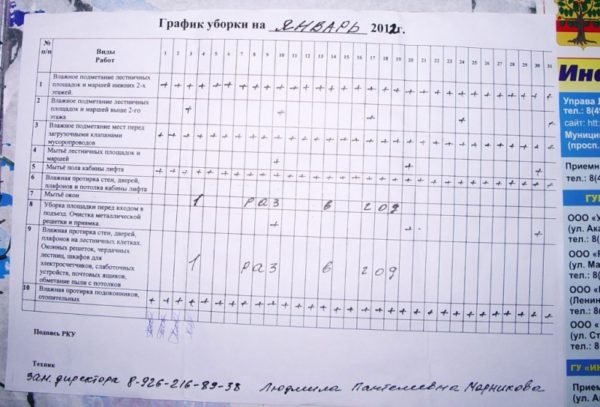 График уборки на ЯНВАРЬ 2012г.
№ п/п
Виды Работ
1 2 3 4 5 6 7 8 9 10 11 12 13 14 15 16 17 18 19 20 21 22 23 24 25 26 27 28 29 30 31
1 Влажное подметание лестничных
площадок и маршей нижних 2-х
этажей.
2 Влажное подметание лестничных
площадок и маршей выше 2-го
этажа
3 Влажное подметание мест перед
загрузочными клапанами
мусоропроводов
4 Мытьё лестничных площадок и
маршей
5 Мытьё пола кабины лифта
6 Влажная протирка стен, дверей,
плафонов и потолка кабины лифта
7 Мытьё окон 1 раз в год
8 Уборка площадки перед входом в
подъезд. Очистка металлической
решетки и приямка.
9 Влажная протирка стен, дверей,
плафонов на лестничных клетках.
Оконных решеток, чердачных
лестниц, шкафов для
электросчетчиков, слаботочных
устройств, почтовых ящиков,
обметание пыли с потолков
1 раз в год
10 Влажная протирка подоконников,
отопительных
Подпись РКУ
Техник
Зам. директора 8-926-216-89-38 Людмила Пантелеевна Марникова
Ин
Управа
тел.: 8(4
сайт: htt
Муницип
(просп.
Приемн
тел.: 8(
ГУ
ООО «
(ул. Ака
тел.: 8(
ООО «
(ул. Ма
тел.: 8(
ООО «
(Ленин
тел.: 8(
ООО «
(ул. Ст
тел.: 8(
ГУ «ИН
Прием
(ул. А